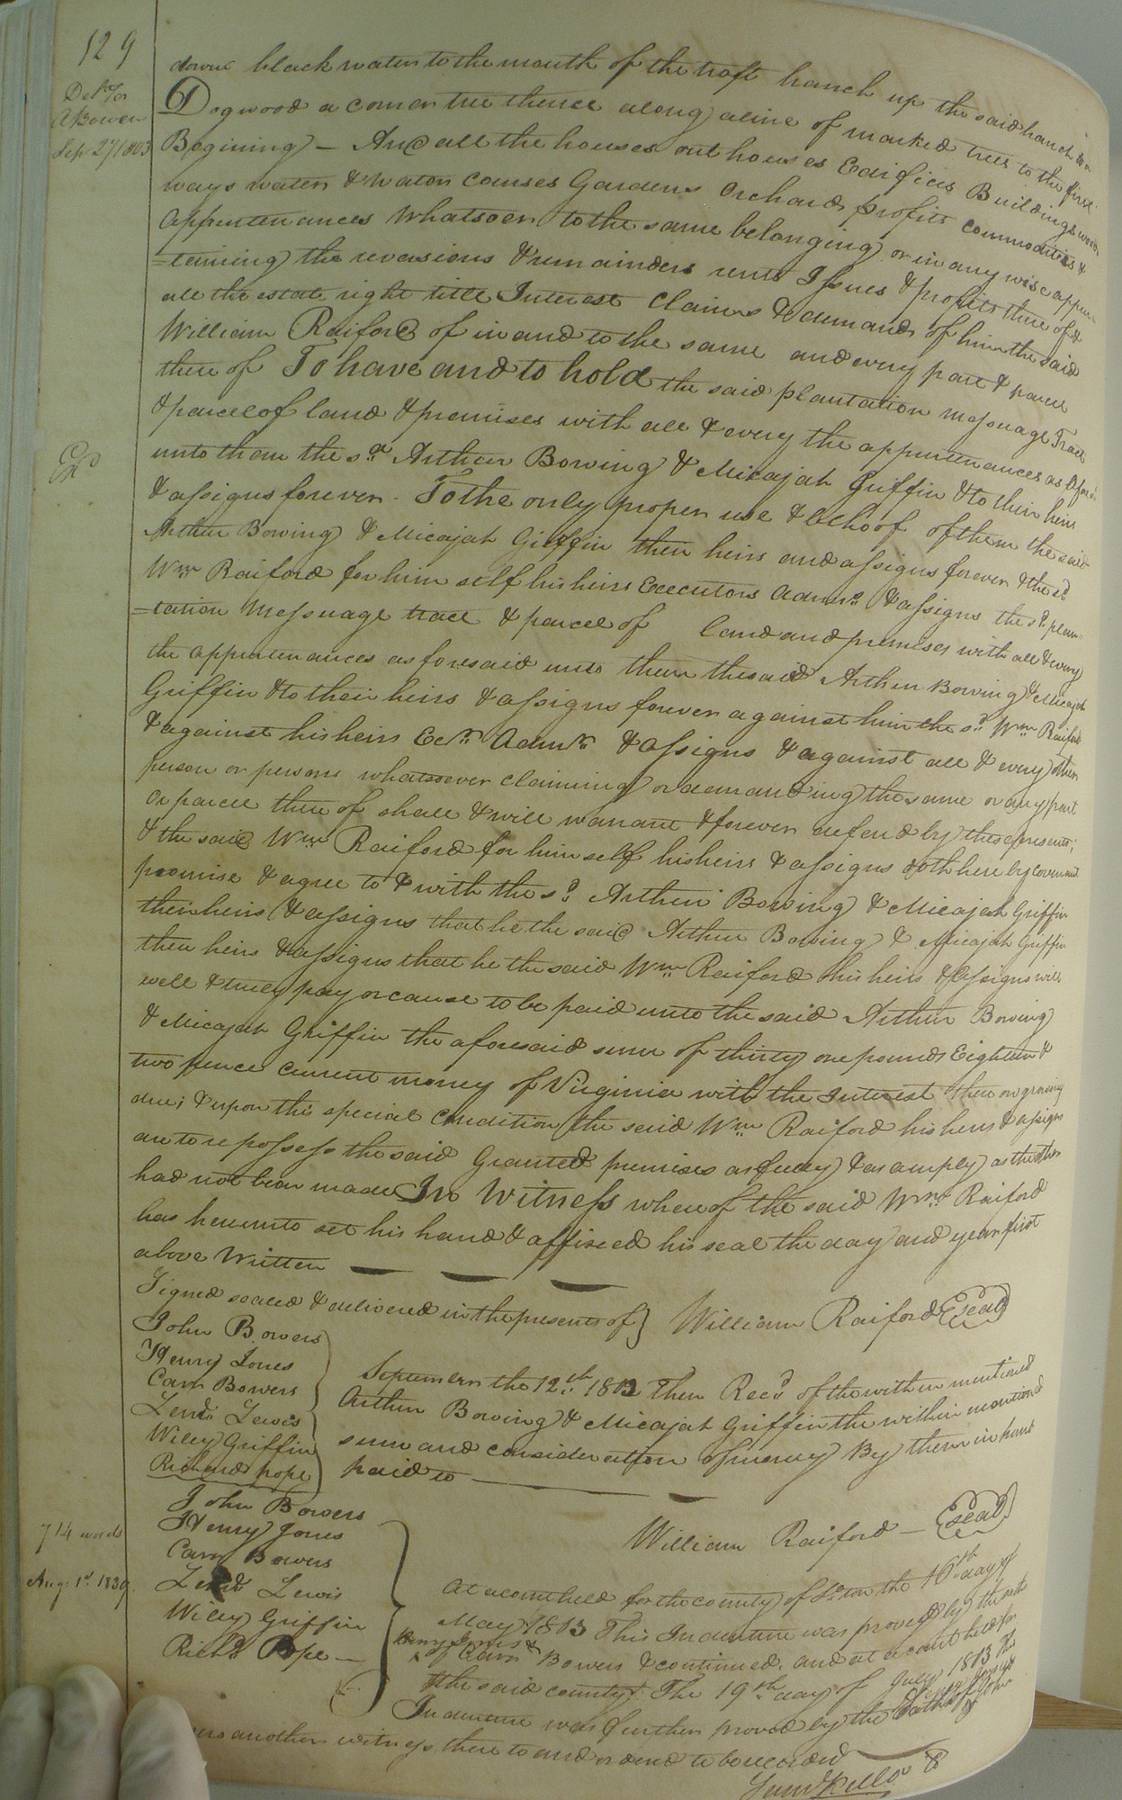 129
Del'd to
A Bowen
Sep 27 1803
downe black water to the mouth of the said branch up the said branch to a
Dogwood a corner tree thence along a line of marked trees to the first
Begining — And all the houses out houses Edifices Buildings woods
ways waters & Water Courses Gardens Orchards profits commodities &
appurtenances Whatsoever to the same belonging or in any wise apper
=taining the revasions & remainders rents Issues & profits there of &
all the estate right title Interest Claims & demands of him the said
William Raiford of in and to the same and every part & parcel
there of To have and to hold the said plantation Messuage Tract
& parcel of land & premises with all & every the appurtenances as aforesd
unto them the sd Arthur Bowing & Micajah Griffin & to their heirs
& assigns forever - To the only proper use & behoof of them the said
Arthur Bowing & Micajah Griffin their heirs and assigns forever & the sd
Wm Raiford for him self his heirs Executors Admrs & assigns the sd plan
=tation Messuage tract & parcel of land and premises with all & every
the appurtenances as foresaid unto them the said Arthur Bowing & Micajah
Griffin & to their heirs & assigns forever against him the sd Wm Raiford
& against his heirs Exrs Admrs & assigns & against all & every other
person or persons whatsoever claiming or demanding the same or any part
or parcel there of shall & will warrant & forever defend by these presents;
& the said Wm Raiford for him self his heirs & assigns doth here by covenant
promise & agree to & with the sd Arthur Bowing & Micajah Griffin
their heirs & assigns that he the said Arthur Bowing & Micajah Griffin
their heirs & assigns that he the said Wm Raiford his heirs & assigns will
well & truly pay or cause to be paid unto the said Arthur Bowing
& Micajah Griffin the aforesaid sum of thirty one pounds Eighteen &
two pence Current money of Virginia with the Interest there on growing
due; & upon this special Condition the said Wm Raiford his heirs & assigns
are to re possess the said Granted premises as fully & as amply as tho this
had not bean made In Witness where of the said Wm Raiford
has hereunto set his hand & affixeed his seal the day and year first
above Written
Signed sealed & delivered in the presents of } William Raiford Seal
John Bowers
Henry Jones
Carr Bowers
Lewis
Wiley Griffin
Richard pope
Septemern the 12th 1812 Then Recd of the with in mentioned
Arthur Bowing & Micajah Griffin the within mentioned
sum and consideration of money By them in hand
paid to
William Raiford — Seal
John Bowers
Henry Jones
Carr Bowers
Lewis
Wiley Griffin
Richd Pope —
714 words
Aug 1st 1839
At a court held for the county of the 16th day of
May 1813 This Indenture was proved by the oath
Henry Jones &
of Carr Bowers & continued. and at a court held for
the said county The 19th day of July 1813 This
Indenture was further proved by the Oath of John
another witness there to and orderd to be recorded